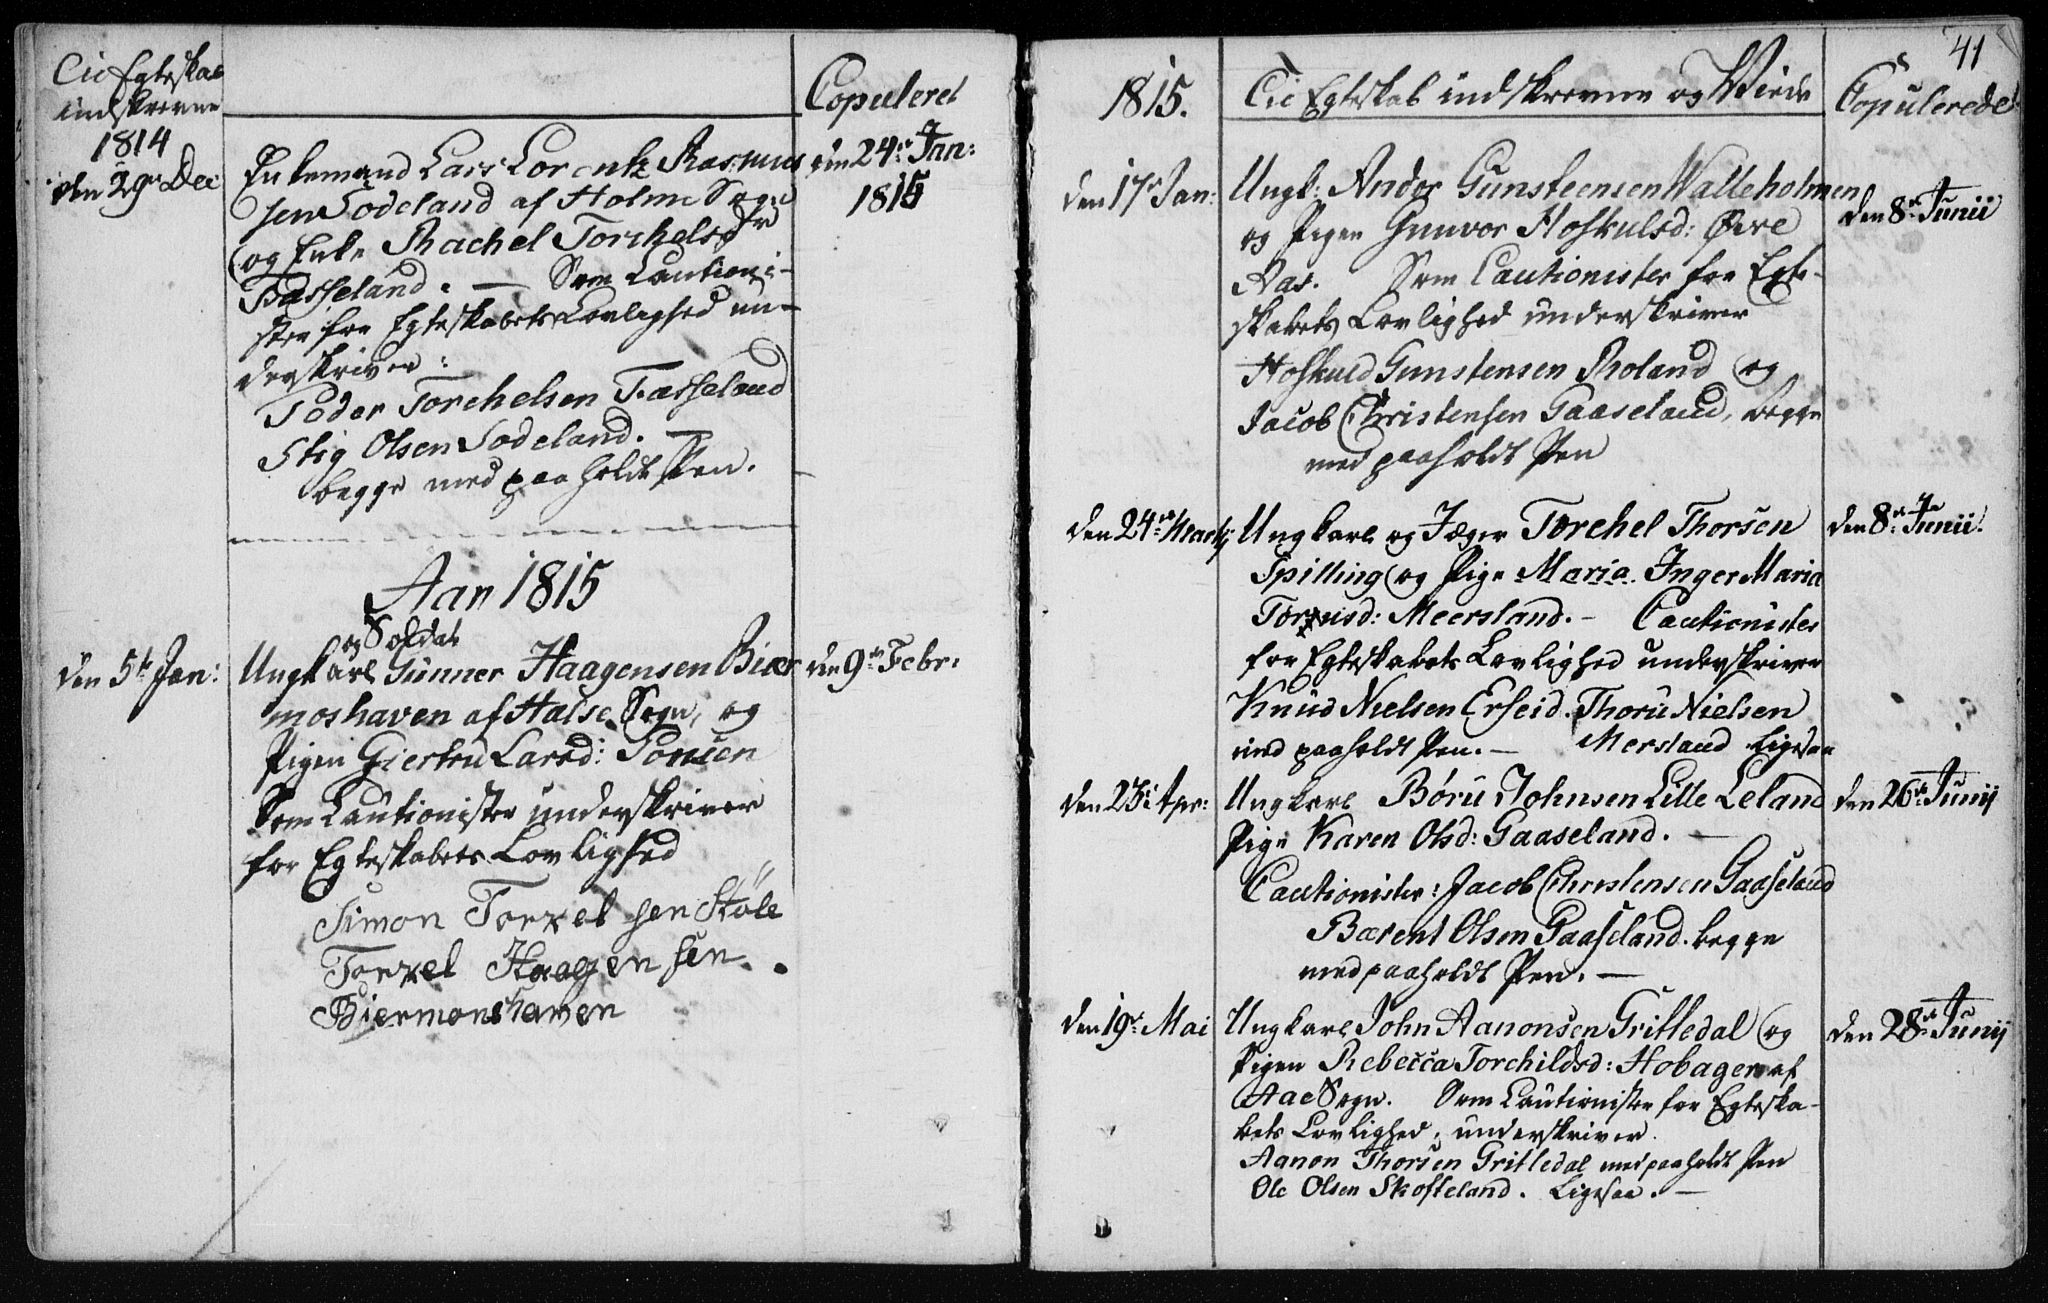 Til Egteskab
indskrevne
1814
den 29de Dec
Copuleret
Enkemand Lars Lorentz Rasmus
sen Sodeland af Holme Sogn
og Enke Rachel Torkelsdr
Tasseland. — Som Cautioni-
ster for Egteskabets Lovlighed un-
derskriver:
Peder Torchelsen Tasseland
Stig Olsen Sodeland. —
begge med paaholdt Pen.
den 24de Jan:
1815
Aar 1815
og Soldat
den 5te Jan:
Ungkarl Gunner Haagensen Biær
moshaven af Halse Sogn, og
Pigen Giertru Larsd: Sonsen
Som Cautionister underskriver
for Egteskabets Lovlighed
Simon Torxel sen Støle
Torxel Haagensen
Biermonshaven
den 9de Febr:
41
1815.
Til Egteskab indskrevne og Viede
Copulerede
den 17de Jan:
Ungk: Ander Gunsteensen Walleholmen
og Pigen Gunvor Hoskulsd: Øvre
Aas. Som Cautionister for Egte-
skabets Lovlighed underskriver
Hoskuld Gunstensen Roland og
Jacob Christensen Gaaseland, begge
med paaholdt Pen
den 8de Junii
den 24de Martij
Ungkarl og Jæger Torchel Thorsen
Spilling og Pige Maria Inger Maria
Tormusd: Meersland. — Cautionister
for Egteskabets Lovlighed underskriver
Knud Nielsen Erseid. Thoru Nielsen
med paaholdt Pen. — Mersland ligesaa
den 8de Junii.
den 23de Apr:
Ungkarl Børu Johnsen Lille Leland
Pige Karen Olsd: Gaaseland. —
Cautionister: Jacob Christensen Gaaseland
Bærent Olsen Gaaseland. begge
med paaholdt Pen. —
den 26de Junij
den 19de Mai
Ungkarl John Aanonsen Grittledal og
Pigen Rebecca Torchildsd: Hobagen af
Aae Sogn. Som Cautionister for Egteska-
bets Lovlighed, underskriver
Aanon Thorsen Gritledal med paaholdt Pen
Ole Olsen Skofteland. Ligesaa. —
den 28de Junij